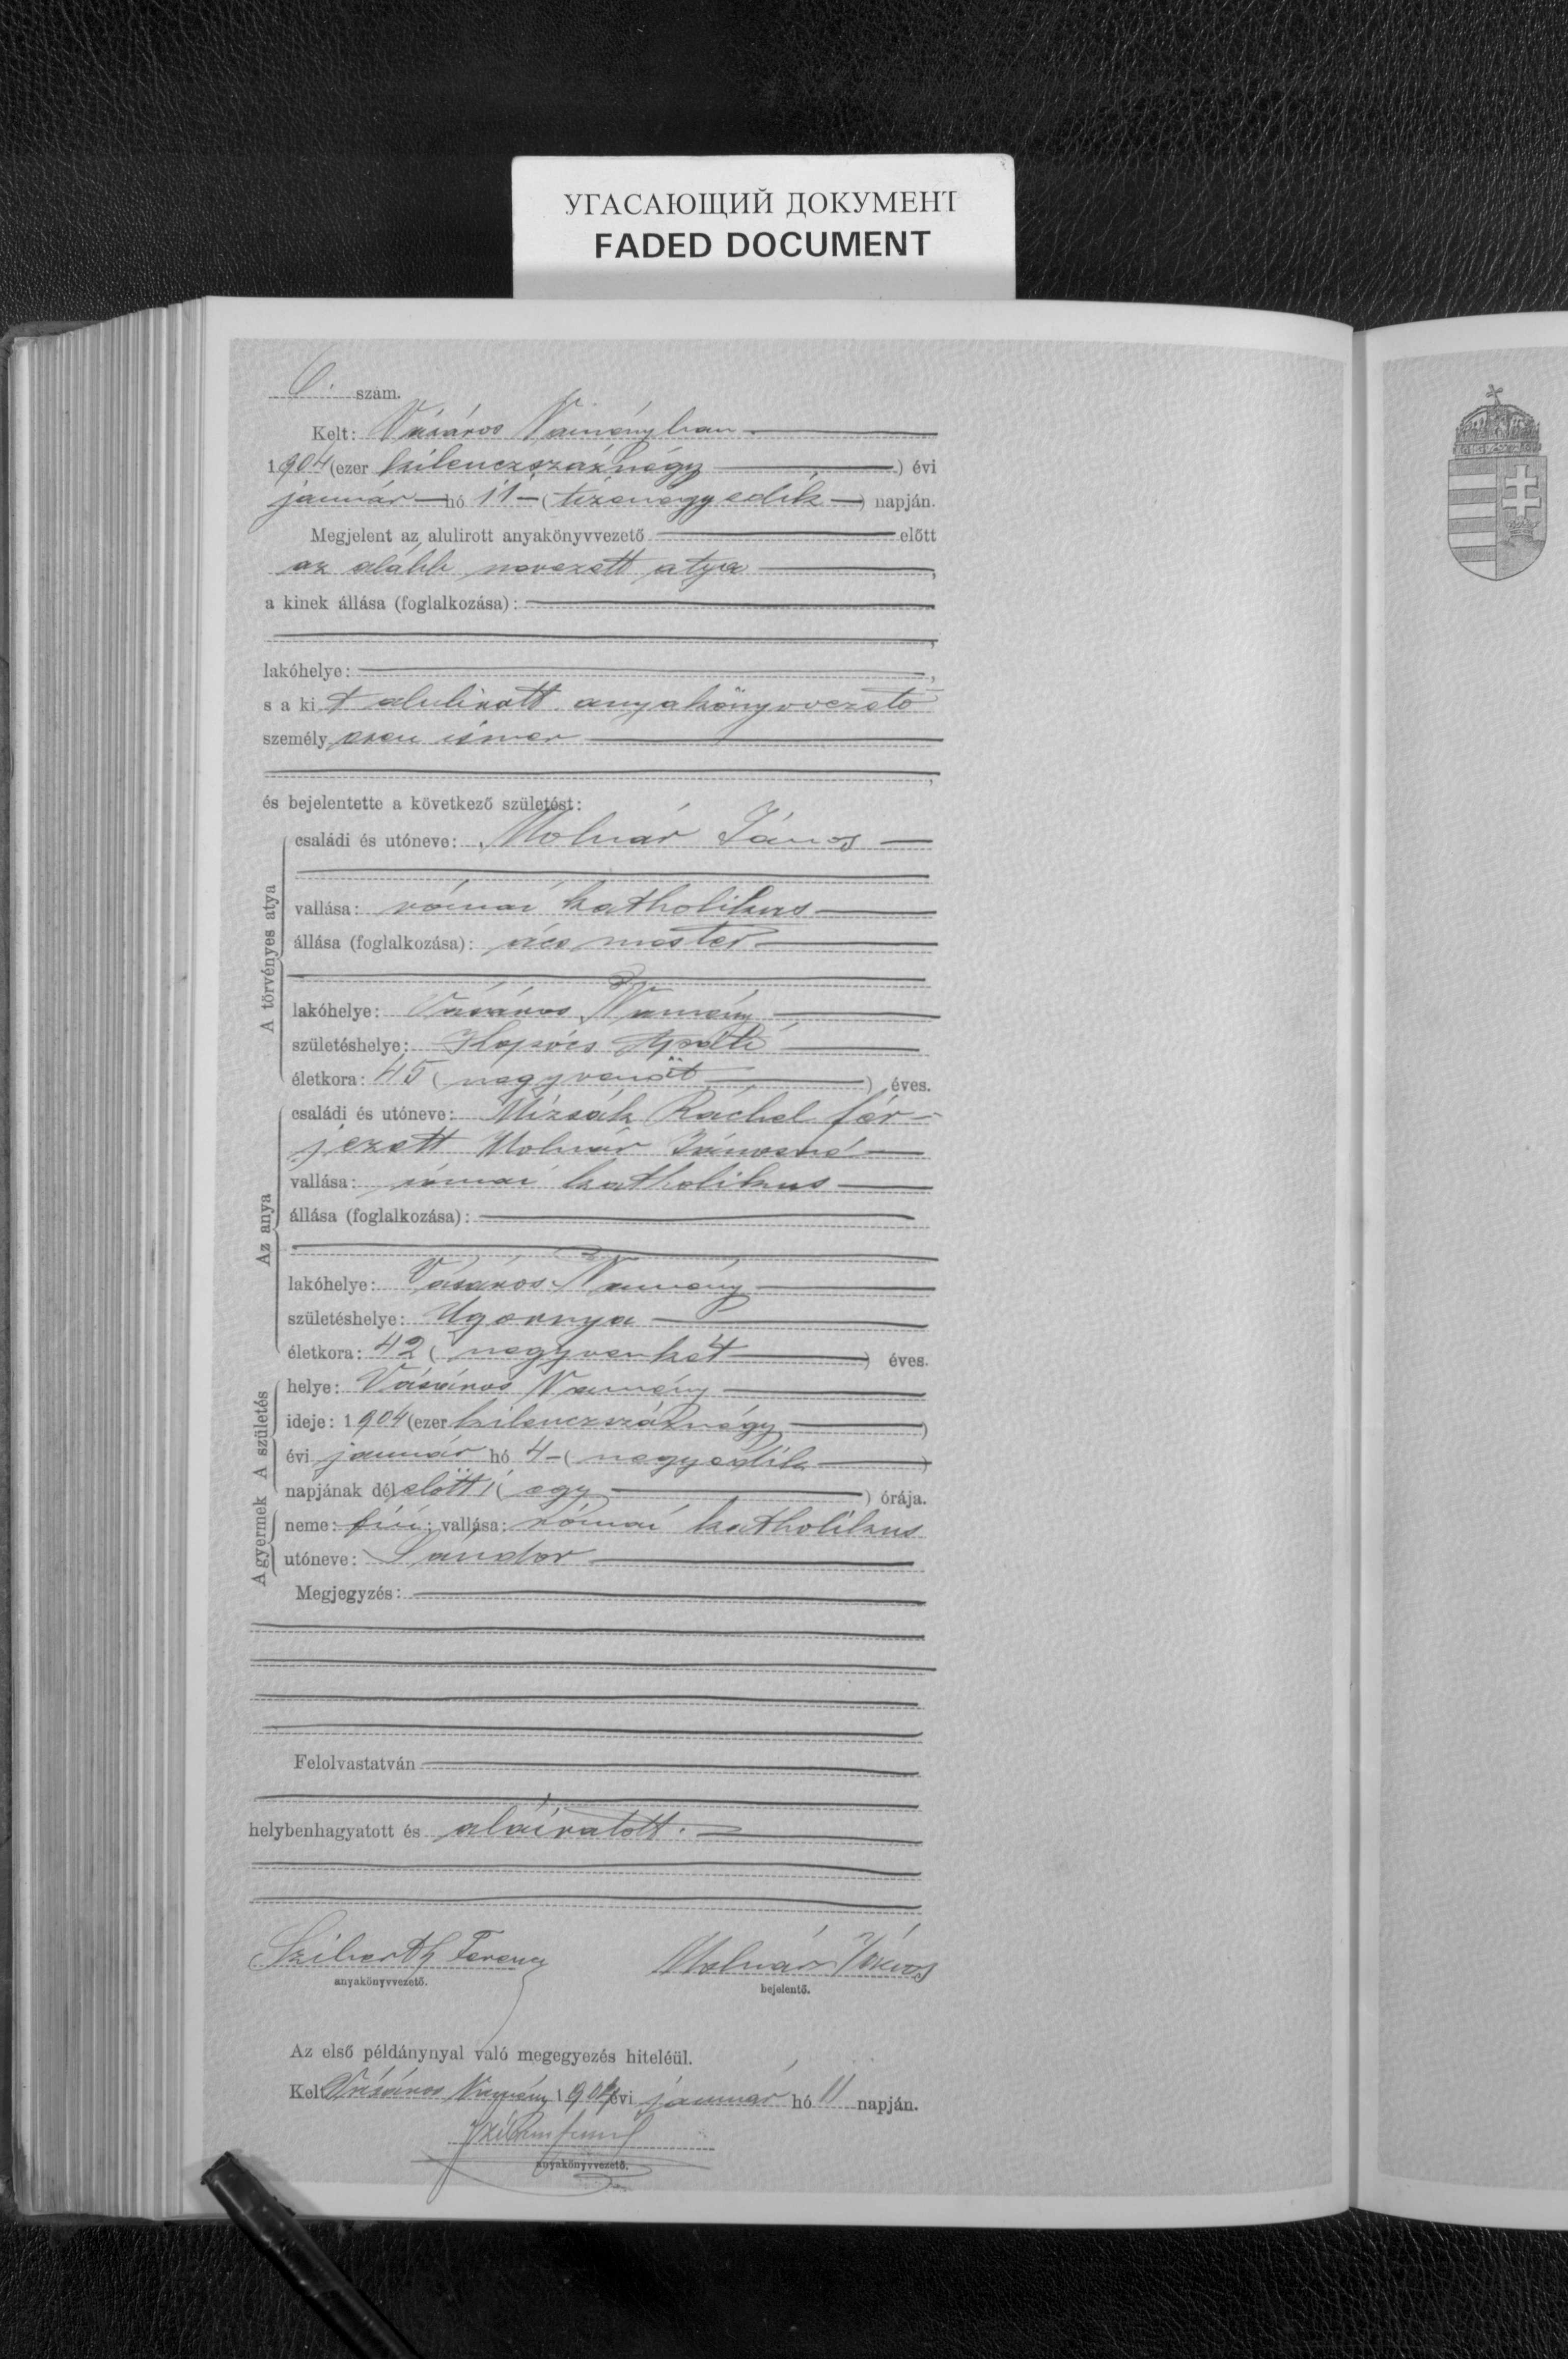 УГАСАЮЩИЙ ДОКУМЕНТ
FADED DOCUMENT
6. szám.
Kelt: Vásáros Naményban
1904 (ezer kilenczszáznégy) évi
január hó 11 - (tizenegyedik) napján.
Megjelent az alulirott anyakönyvvezető előtt
az alább nevezett atya,
a kinek állása (foglalkozása):
lakóhelye:
s a kit alulirott anyakönyvvezető
személyesen ismer
és bejelentette a következő születést:
A törvényes atya
családi és utóneve: Molnár János
vallása: római katholikus
állása (foglalkozása): ács mester
lakóhelye: Vásáros Namény
születéshelye: Apáti
életkora: 45 (negyvenöt) éves.
Az anya
családi és utóneve: Mizsák Ráchel fér-
jezett Molnár Jánosné
vallása: római katholikus
állása (foglalkozása):
lakóhelye: Vásáros-Namény
születéshelye: Ugornya
életkora: 42 (negyvenkét) éves.
A születés
helye: Vásáros Namény
ideje: 1904 (ezer kilenczszáznégy)
évi január hó 4 - (negyedik)
napjának délelőtt 1 (egy) órája.
A gyermek
neme: fiú; vallása: római katholikus
utóneve: Sándor
Megjegyzés:
Felolvastatván
helybenhagyatott és aláiratott.
Ferencz Molnár János
anyakönyvvezető. bejelentő.
Az első példánynyal való megegyezés hiteléül.
Kelt Vásáros Namény 1904 évi január hó 11 napján.
anyakönyvvezető.